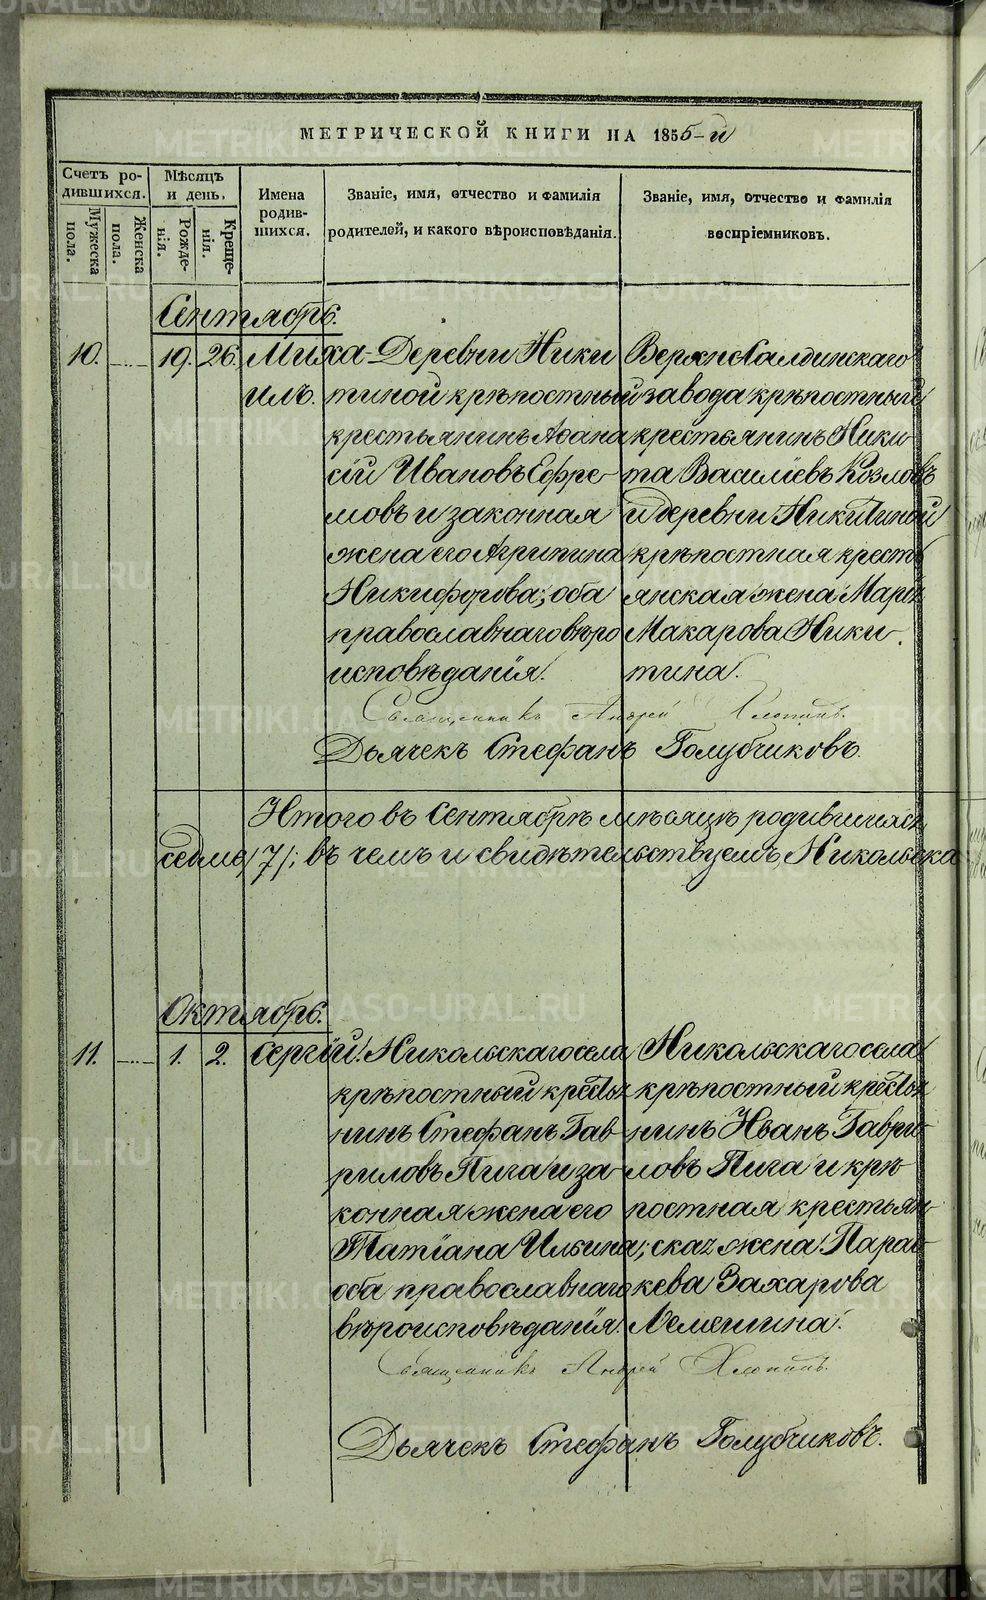 МЕТРИЧЕСКОЙ КНИГИ НА 1855-й
Счетъ ро-
дившихся.
Мужеска
пола.
Женска
пола.
Мѣсяцъ
и день.
Рожде-
нія.
Креще-
нія.
Имена
родив-
шихся.
Званіе, имя, отчество и фамилія
родителей, и какого вѣроисповѣданія.
Званіе, имя, отчество и фамилія
воспріемниковъ.
Сентябрь.
10. 19. 26. Миха-
илъ.
Деревни Ники
тиной крѣпостный
крестьянинъ Афана
сій Ивановъ Ефре-
мовъ и законная
жена его Агрипина
Никифорова; оба
православнаго вѣро
исповѣданія.
Верхнесалдинскаго
завода крѣпостный
крестьянинъ Ники-
та Василіевъ Козловъ
и деревни Никитиной
крѣпостная кресть
янская жена Марѳа
Макарова Ники-
тина.
Священникъ Андрей Хлопинъ.
Дьячекъ Стефанъ Голубчиковъ.
Итого въ Сентябрѣ мѣсяцѣ родившихся
седмь /7/; въ чемъ и свидѣтельствуемъ, Никольска
Октябрь.
11. 1. 2. Сергій.
Никольскаго села
крѣпостный крестья
нинъ Стефанъ Гав-
риловъ Пига и за-
конная жена его
Татіана Ильина;
оба православнаго
вѣроисповѣданія.
Никольскаго села
крѣпостный крестья
нинъ Иванъ Гаври-
ловъ Пига и крѣ
постная крестьян-
ская жена Парас-
кева Захарова
Лемешина.
Священникъ Андрей Хлопинъ.
Дьячекъ Стефанъ Голубчиковъ.
METRIKI.GASO-URAL.RU